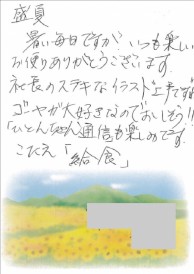 盛夏
暑い毎日ですが、いつも楽しい
お便りありがとうございます。
社長のステキなイラスト上手です
ゴーヤが大好きなのでおいしそう!!
「ひとんちゃん通信も楽しみです。
こたえ「給食」